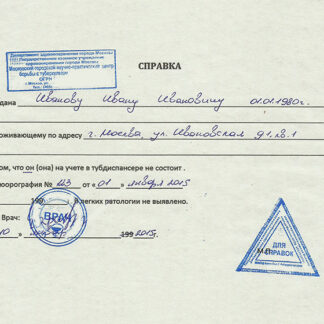 Департамент здравоохранения города Москвы
Государственное казенное учреждение
здравоохранения города Москвы
Московский городской научно-практический центр
борьбы с туберкулезом
ОГРН
СПРАВКА
дана Иванову Ивану Ивановичу 01.01.1980г.
оживающему по адресу г. Москва, ул. Ивановская д1. кв. 1
ом, что он (она) на учете в тубдиспансере не состоит.
юорография № 123 от «01» января 2015
199 . В легких патологии не выявлено.
Врач:
ВРАЧ
199 2015г.
ДЛЯ
СПРАВОК
М.П.